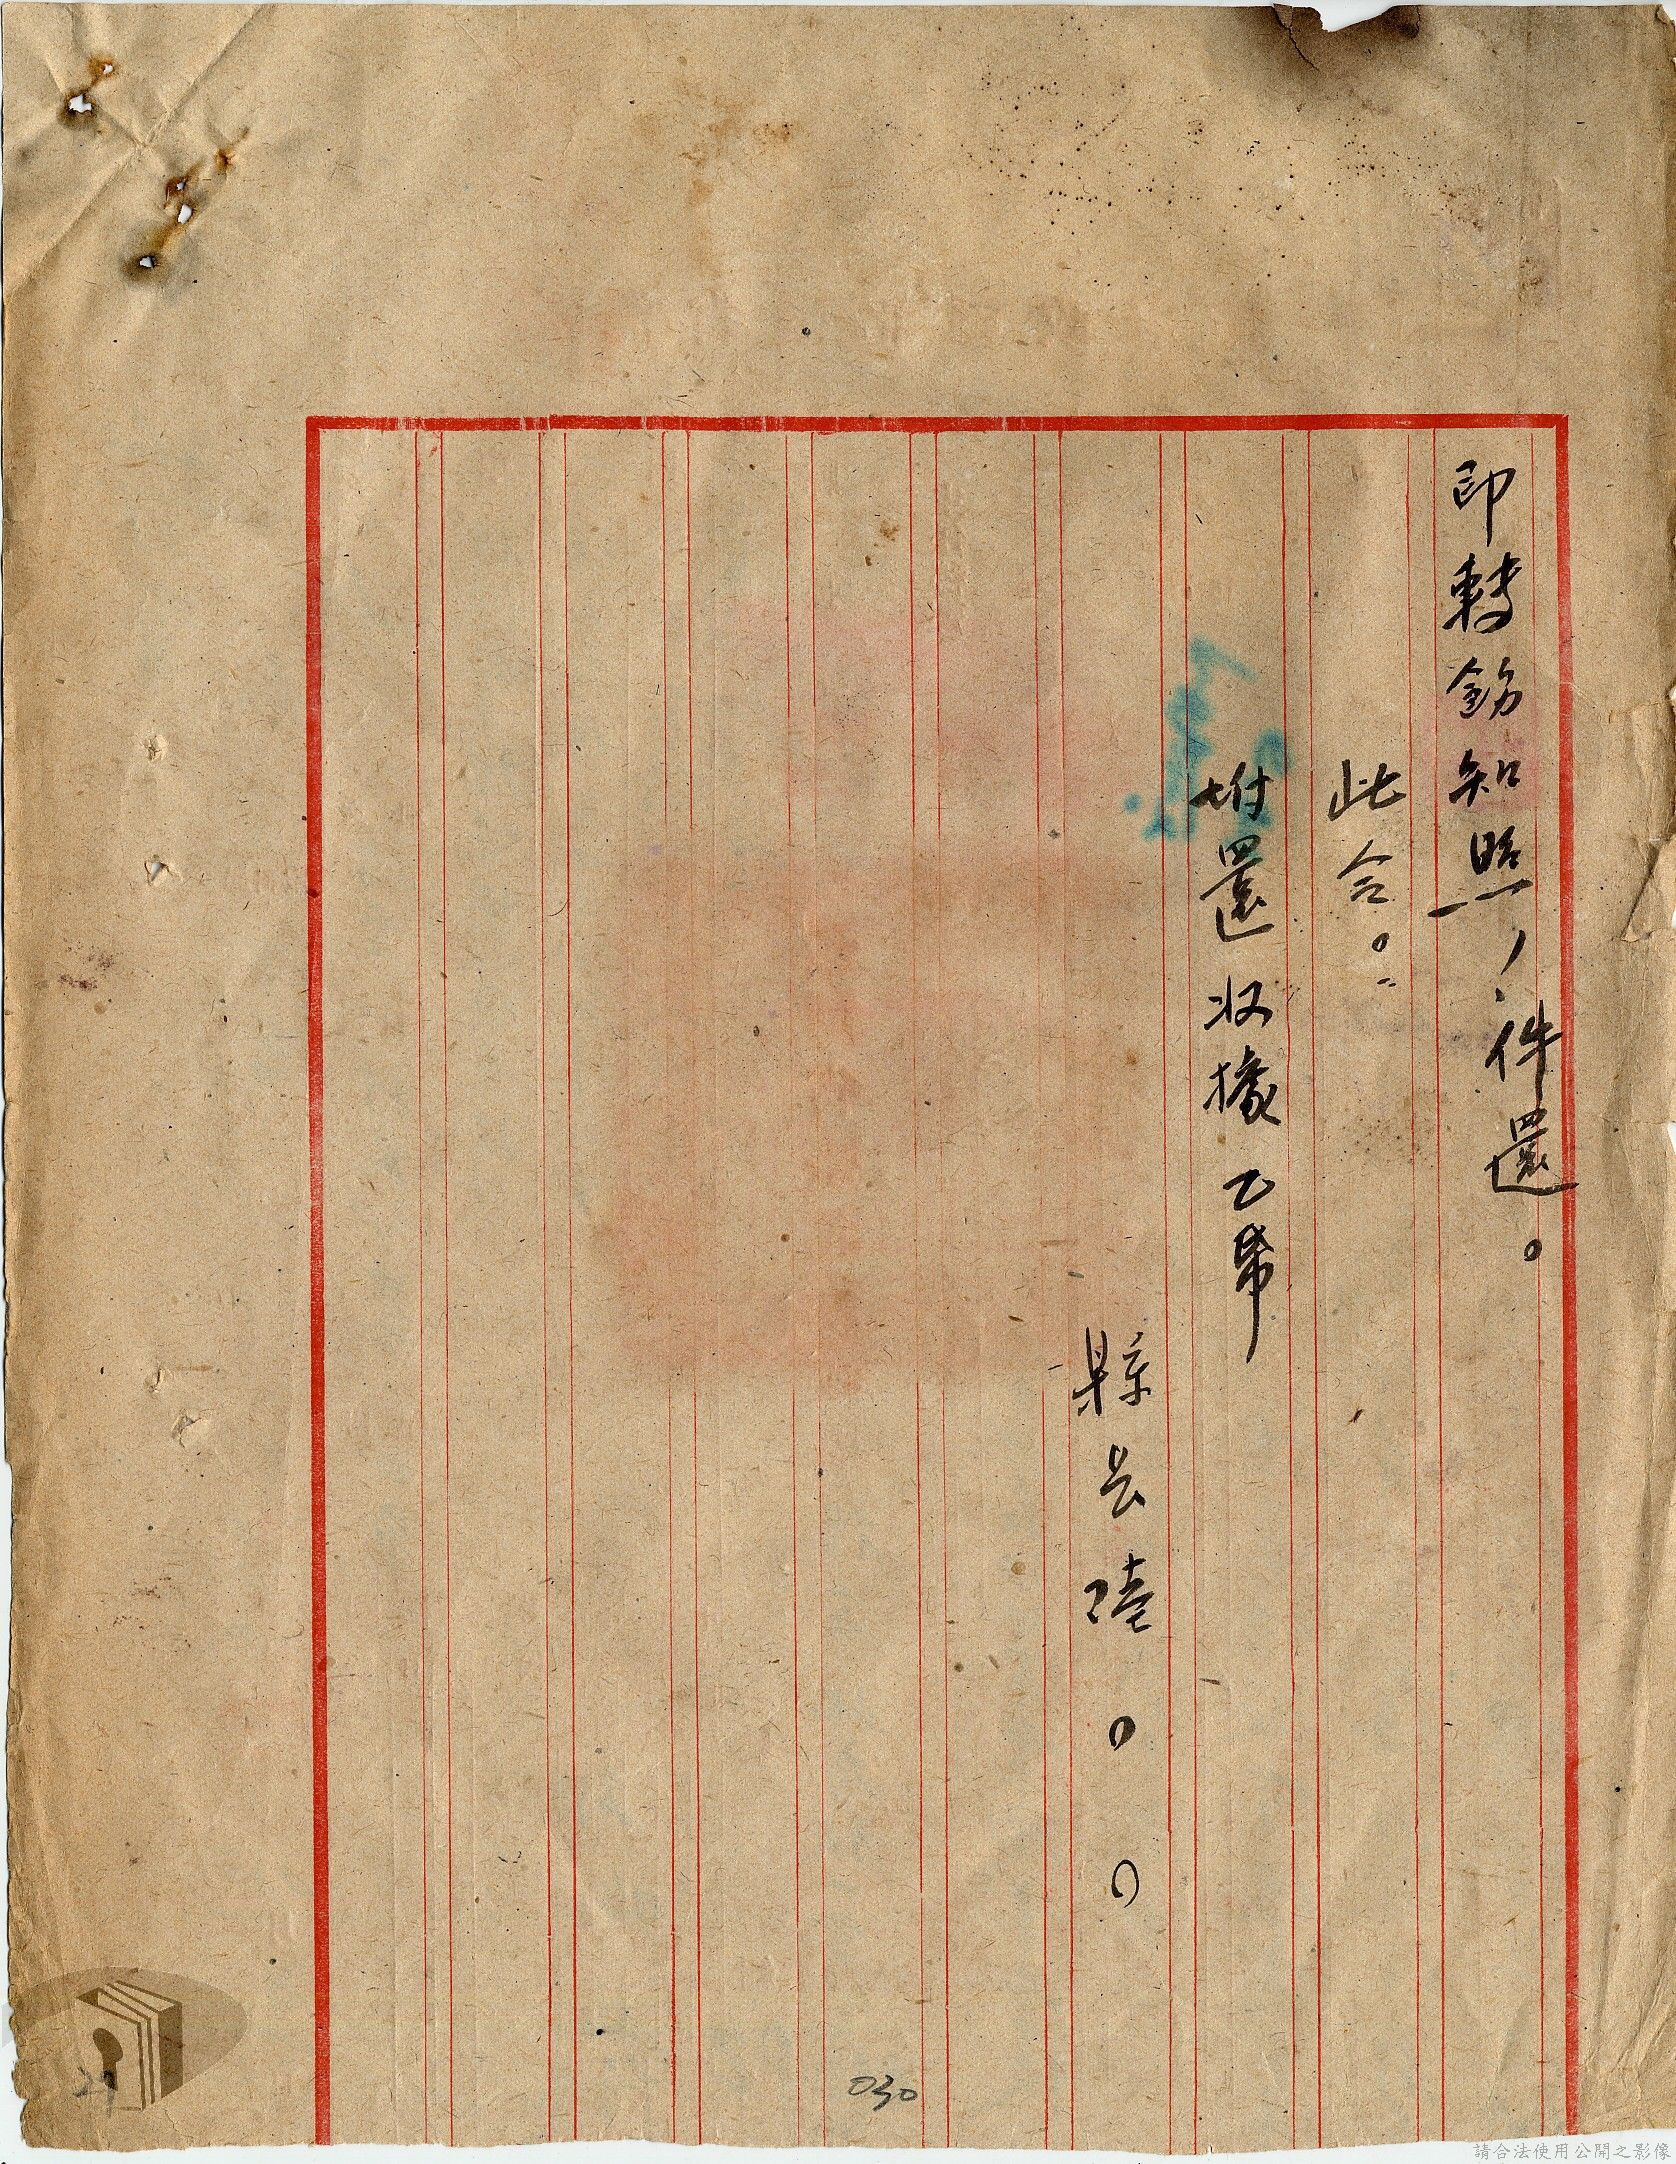 即轉飭知照，件還。
此令。
附還收據乙帋
縣長陸〇〇
030
29
請合法使用公開之影像